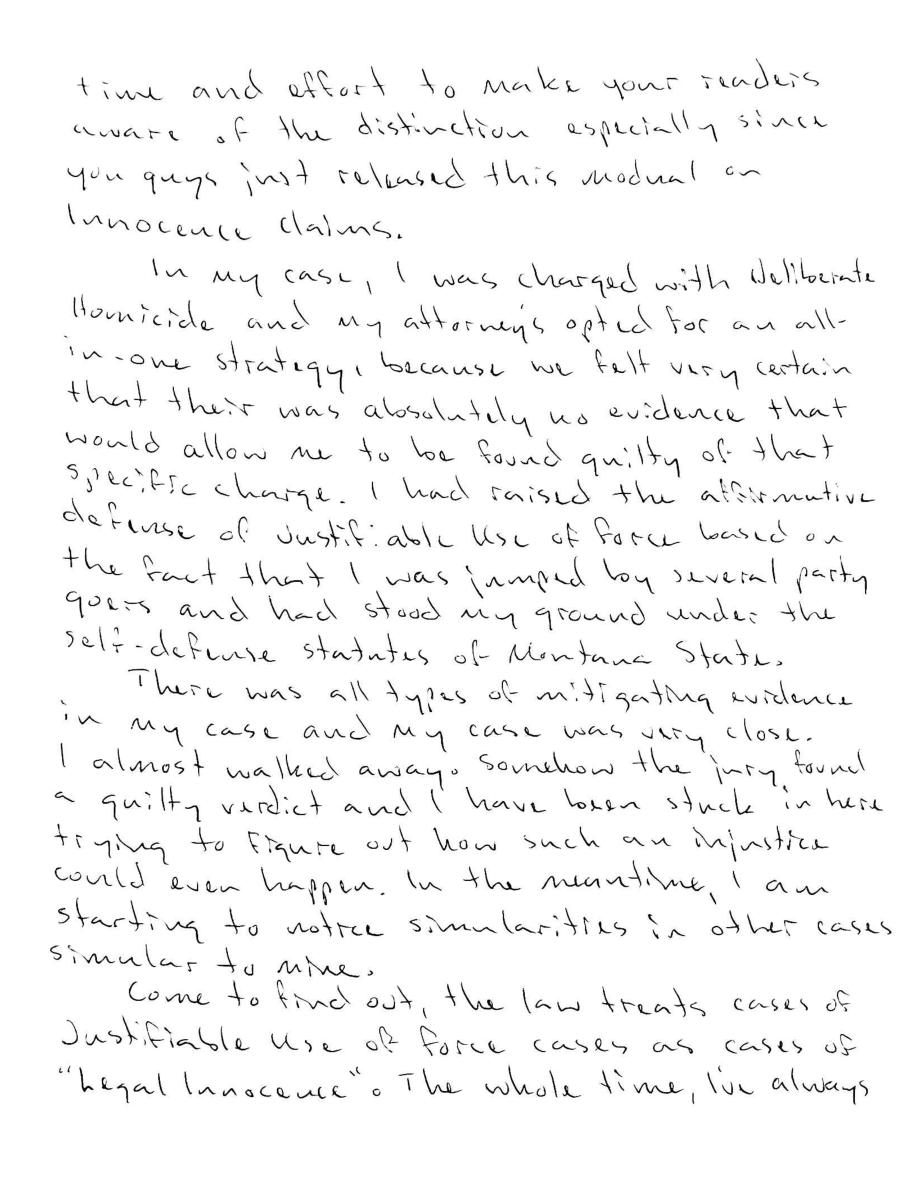 time and effort to make your readers
aware of the distinction especially since
you guys just released this modual on
Innocence Claims.
In my case, I was charged with Deliberate
Homicide and my attorney's opted for an all-
in-one strategy, because we felt very certain
that their was absolutely no evidence that
would allow me to be found guilty of that
specific charge. I had raised the affirmative
defense of Justifiable Use of Force based on
the fact that I was jumped by several party
goers and had stood my ground under the
self-defense statutes of Montana State.
There was all types of mitigating evidence
in my case and my case was very close.
I almost walked away. Somehow the jury found
a guilty verdict and I have been stuck in here
trying to figure out how such an injustice
could even happen. In the meantime, I am
starting to notice simularities in other cases
simular to mine.
Come to find out, the law treats cases of
Justifiable Use of Force cases as cases of
"Legal Innocence". The whole time, I've always